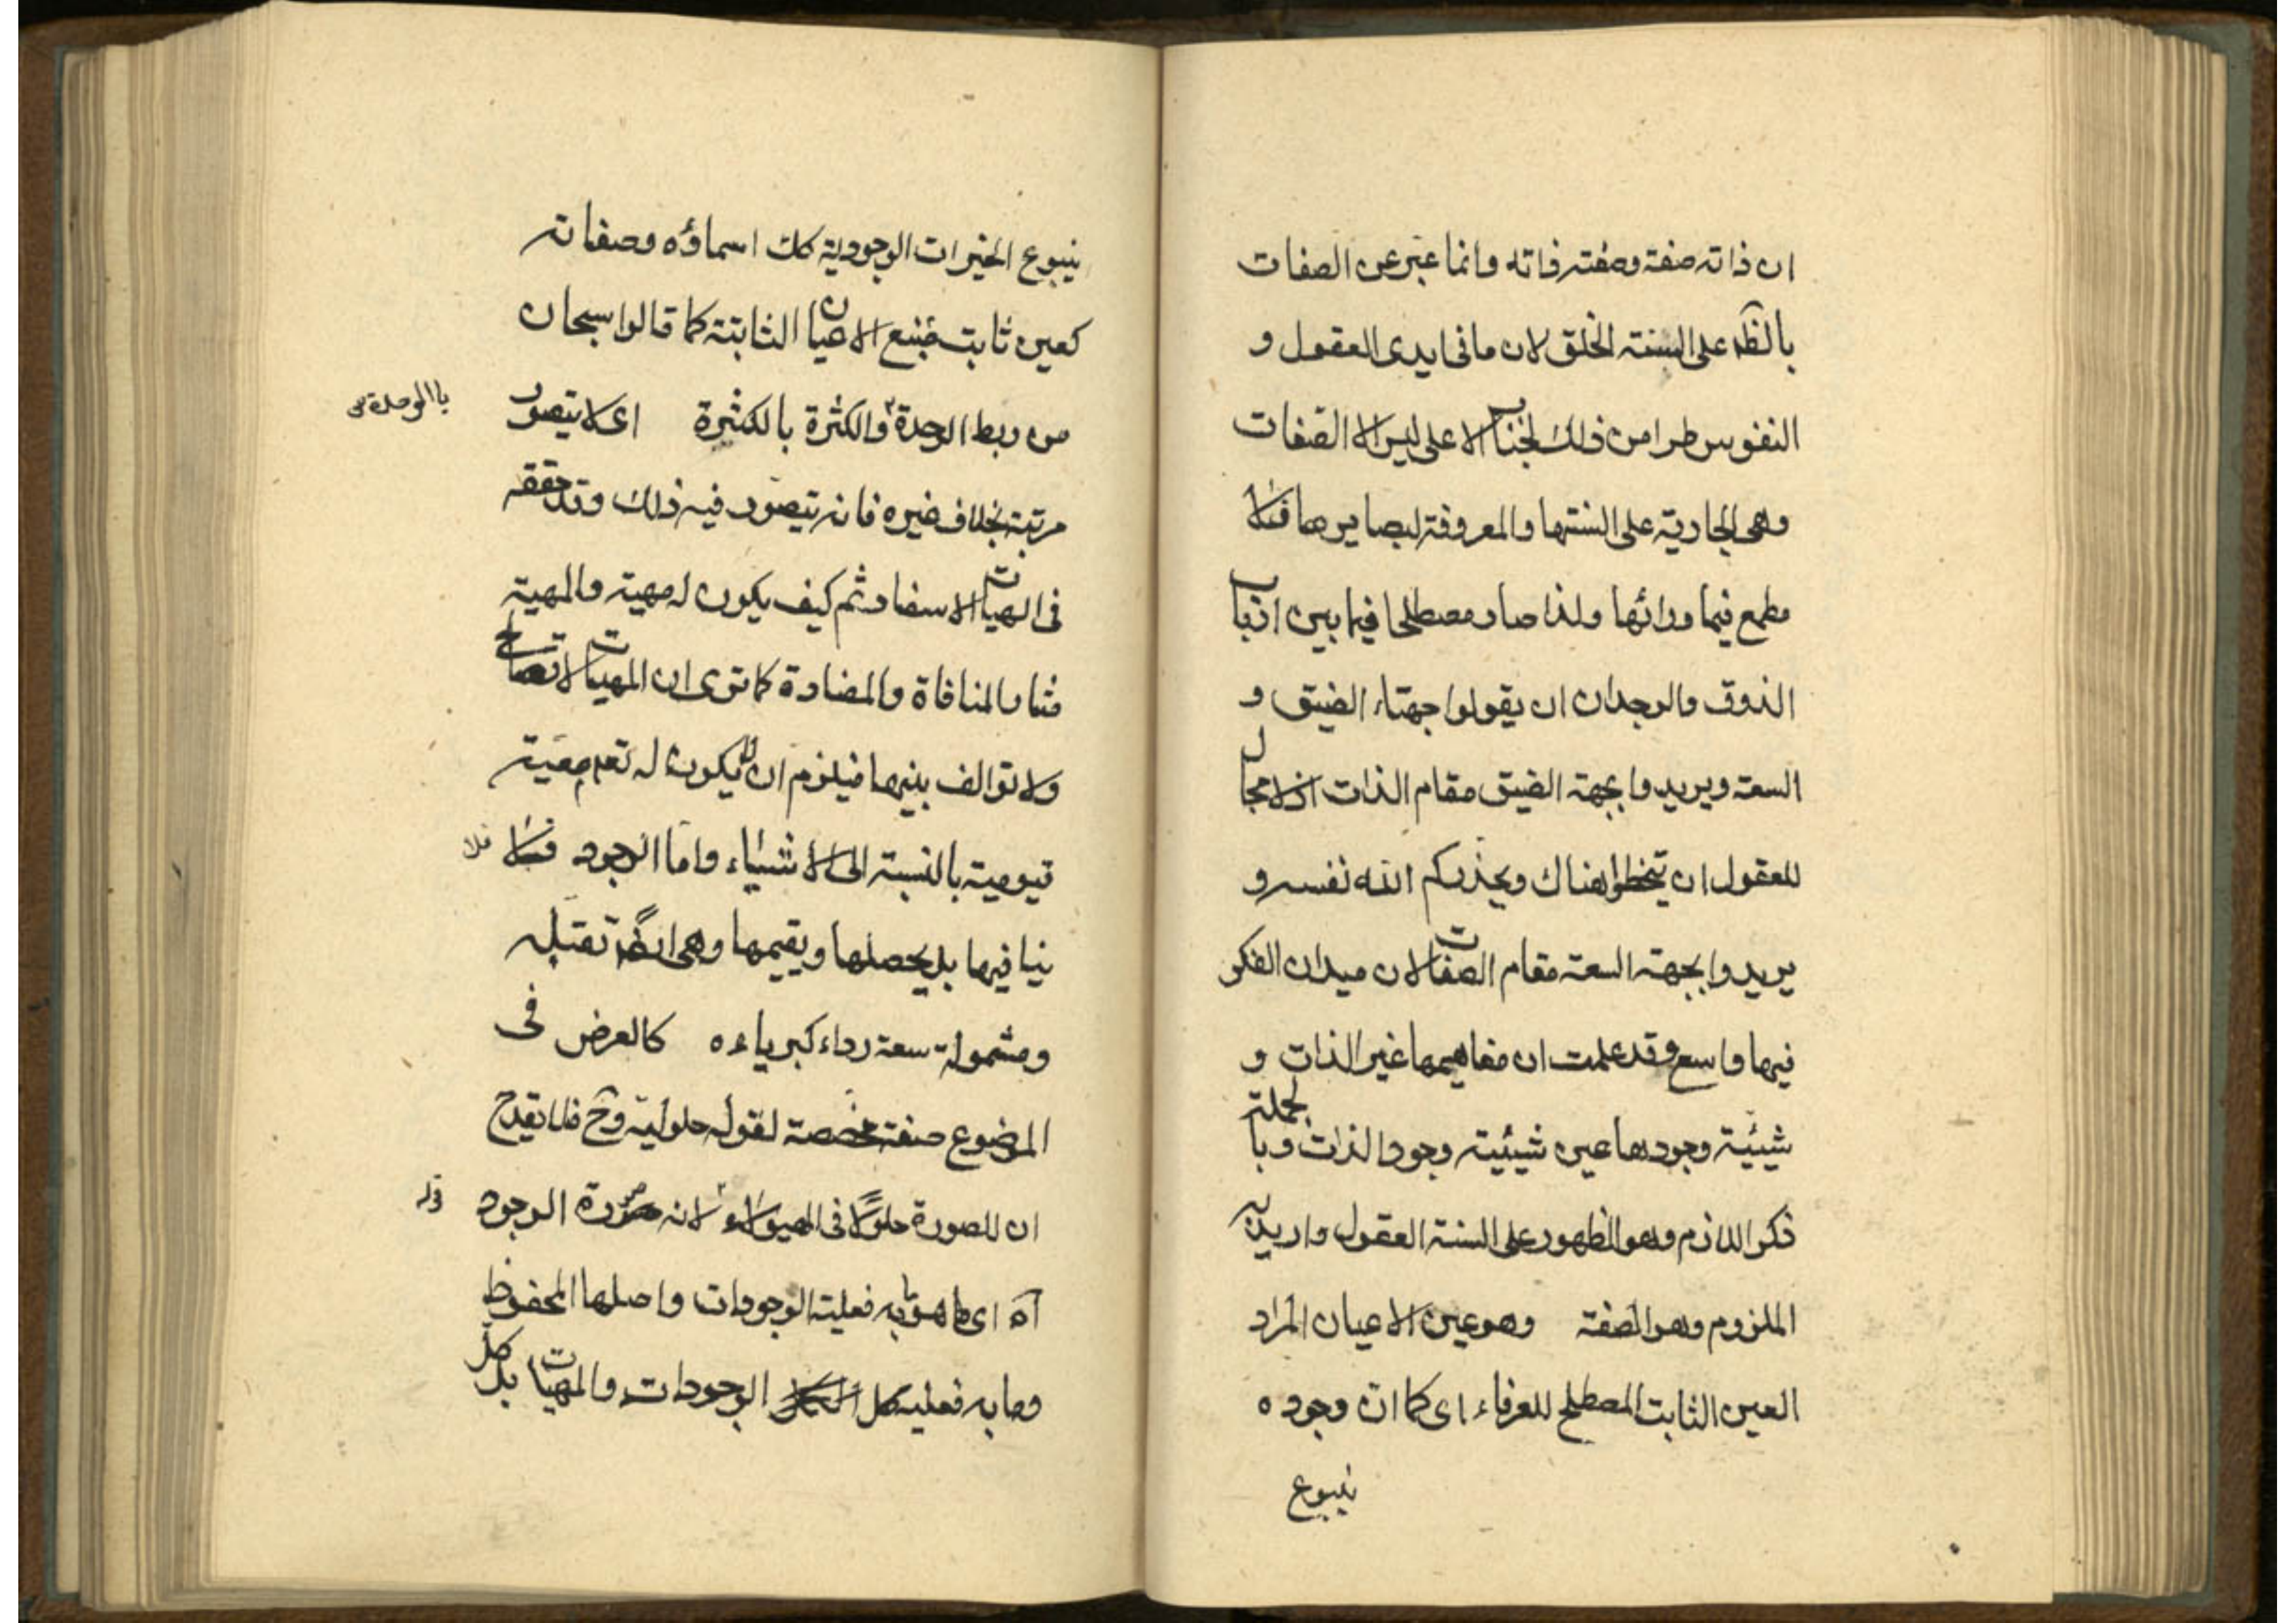 ان ذاته صفته وصفته ذاته وانما عبر عن الصفات
بالظهـ على السنته الخلق لان ما فى ايدى العقول و
النفوس طرا من ذلك الجناب الاعلى ليس الا الصفات
وهى الجارية على السنتها والمعروفة لبصايرها فلا
مطمع فيما ورائها ولذا صار مصطلحا فيما بين ارباب
الذوق والوجدان ان يقولوا جهتاء الضيق و
السعة ويريدوا بجهة الضيق مقام الذات اذ لا مجال
للعقول ان يتخطوا هناك ويحذركم الله نفسه و
يريدوا بجهته السعة مقام الصفات لان ميدان الفكر
فيها واسع وقد علمت ان مفاهيمها غير الذات و
شيئية وجودها عين شيئية وجود الذات وبالجملة
ذكر اللازم وهو الظهور على السنة العقول واريد به
الملزوم وهو الصفة وهو عين الاعيان المراد
العين الثابت المصطلح للعرفاء اى كما ان وجوده
ينبوع
ينبوع الخيرات الوجودية كك اسماؤه وصفاته
كعين ثابت منبع الاعيان الثابتة كما قالوا سبحان
من ربط الوحدة والكثرة بالكثرة اى لا يتصور
بالوحدة
مرتبة بخلاف غيره فانه يتصور فيه ذلك وقد حققه
فى الهيات الاسفار ثم كيف يكون له مهية والمهية
مثار المنافاة والمضادة كما ترى ان المهيات لا تصالح
ولا توالف بينها فيلزم ان لا يكون له تعـ معية
قيومية بالنسبة الى الاشياء واما الوجود فلا
فلا
ينافيها بل يحصلها ويقيمها وهى ايضا تقبله
ومشمولة سعة رداء كبرياءه كالعرض فى
الموضوع صفة مخصصة لقوله حلولية وح فلا يقدح
ان للصورة حلولا فى الهيولاء لانه صورة الوجود
قوله
آه اى ما هو به فعلية الوجودات واصلها المحفوظ
وما به فعلية كل الوجودات والمهيات بل كل